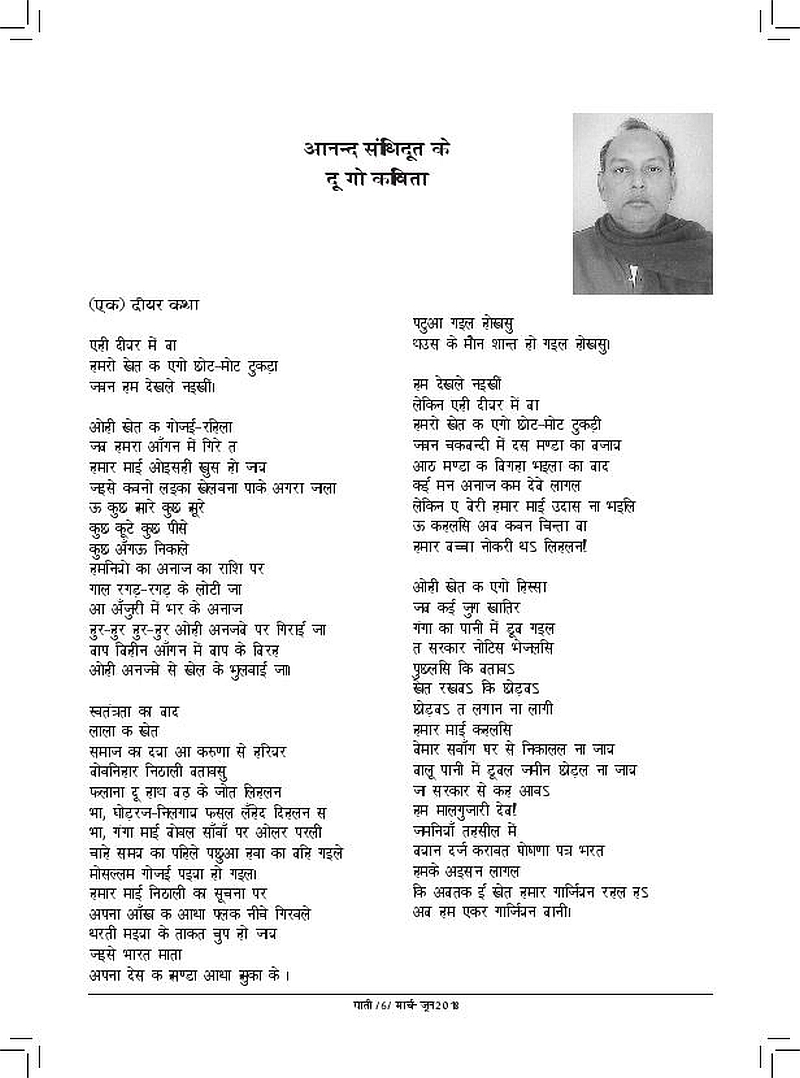 आनन्द संधिदूत के
दू गो कविता
(एक) दीयर कथा
एही दीयर में बा
हमरो खेत क एगो छोट-मोट टुकड़ा
जवन हम देखले नइखीं।
ओही खेत क गोजई-रहिला
जब हमरा आँगन में गिरे त
हमार माई ओइसही खुस हो जाय
जइसे कवनो लइका खेलवना पाके अगरा जाला
ऊ कुछ झारे कुछ झूरे
कुछ कूटे कुछ पीसे
कुछ अँगऊ निकाले
हमनियो का अनाज का राशि पर
गाल रगड़-रगड़ के लोटी जा
आ अँजुरी में भर के अनाज
हुर-हुर हुर-हुर ओही अनजवे पर गिराई जा
बाप विहीन आँगन में बाप के बिरह
ओही अनजवे से खेल के भुलवाई जा।
स्वतंत्रता का बाद
लाला क खेत
समाज का दया आ करुणा से हरियर
बोवनिहार निठाली बतावसु
फलाना दू हाथ बढ़ के जोत लिहलन
भा, घोड़रज-निलगाय फसल लँहेद दिहलन स
भा, गंगा माई बोवल साँवाँ पर ओलर परली
चाहे समय का पहिले पछुआ हवा का बहि गइले
मोसल्लम गोजई पइया हो गइल।
हमार माई निठाली का सूचना पर
अपना आँख क आधा पलक नीचे गिरवले
धरती मइया के ताकत चुप हो जाय
जइसे भारत माता
अपना देस क झण्डा आधा झुका के ।
पटुआ गइल होखसु
धउस के मौन शान्त हो गइल होखसु।
हम देखले नइखीं
लेकिन एही दीयर में बा
हमरो खेत क एगो छोट-मोट टुकड़ी
जवन चकबन्दी में दस मण्डा का बजाय
आठ मण्डा क बिगहा भइला का बाद
कई मन अनाज कम देबे लागल
लेकिन ए बेरी हमार माई उदास ना भइलि
ऊ कहलसि अब कवन चिन्ता बा
हमार बच्चा नोकरी धऽ लिहलन!
ओही खेत क एगो हिस्सा
जब कई जुग खातिर
गंगा का पानी में डूब गइल
त सरकार नोटिस भेजलसि
पुछलसि कि बतावऽ
खेत रखबऽ कि छोड़बऽ
छोड़बऽ त लगान ना लागी
हमार माई कहलसि
बेमार सवाँग घर से निकालल ना जाय
बालू पानी में डूबल जमीन छोड़ल ना जाय
जा सरकार से कह आवऽ
हम मालगुजारी देब!
जमनियाँ तहसील में
बयान दर्ज करावत घोषणा पत्र भरत
हमके अइसन लागल
कि अबतक ई खेत हमार गार्जियन रहल हऽ
अब हम एकर गार्जियन बानी।
पाती /6/ मार्च-जून2018